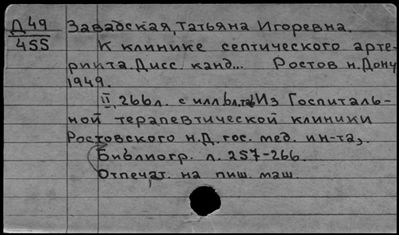 Д 49
455
Завадская, Татьяна Игоревна.
К клинике септического арте-
риита. Дисс. канд... Ростов н. Дону
1949.
II, 266 л. с илл. Из Госпиталь-
ной терапевтической клиники
Ростовского н.Д. гос. мед. ин-та,.
Библиогр. л. 257-266.
Отпечат. на пиш. маш.